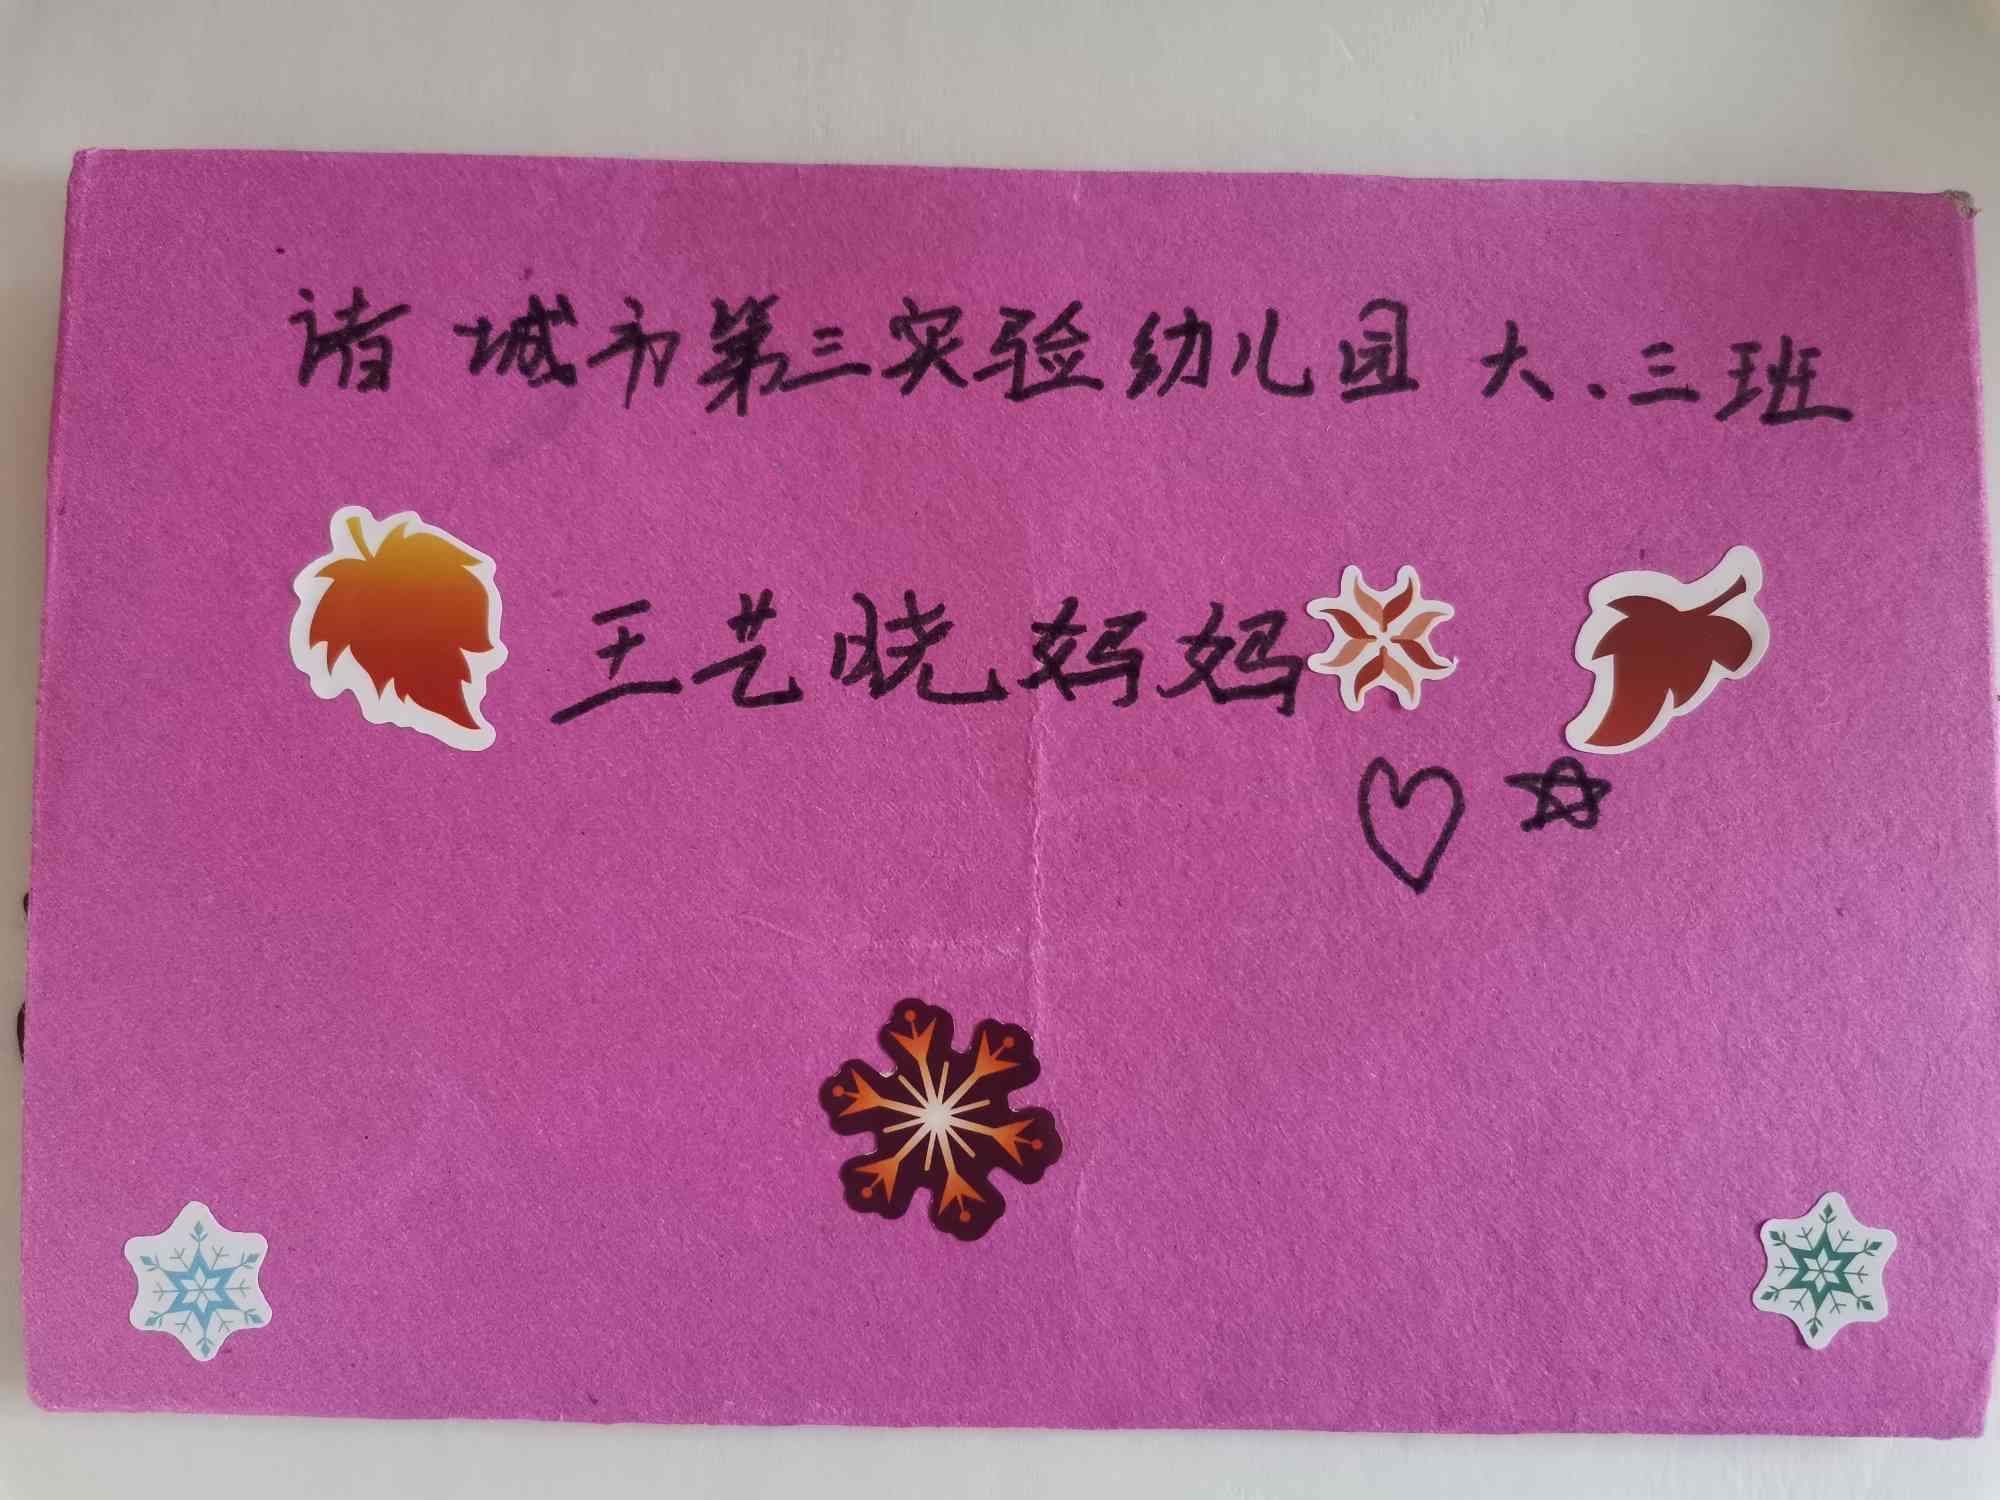 诸城市第三实验幼儿园 大、三班
王艺晓妈妈